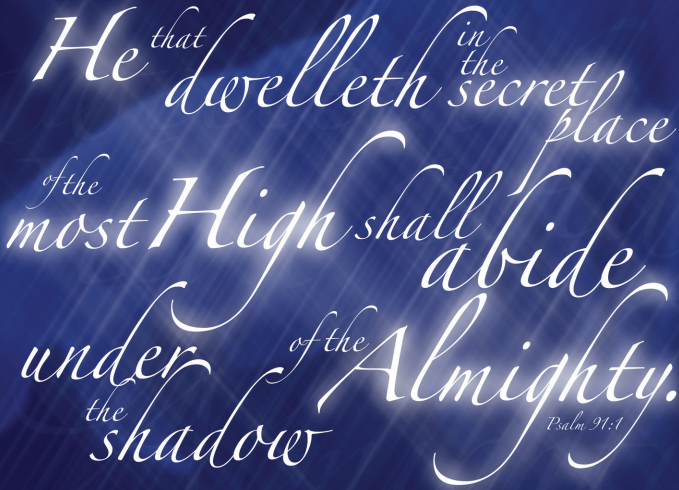 He that dwelleth in the secret place
of the most High shall abide
under the shadow of the Almighty.
Psalm 91:1